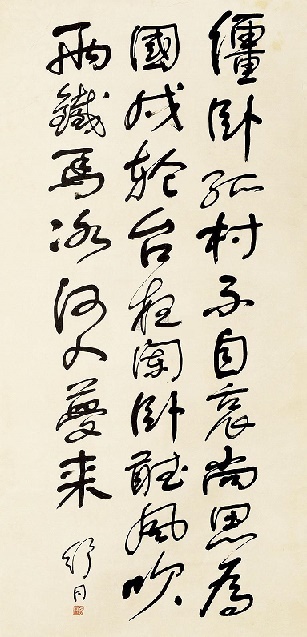 僵卧孤村不自哀尚思為
國戍輪台夜闌卧聽風吹
雨鐵馬冰河入夢来
舒同